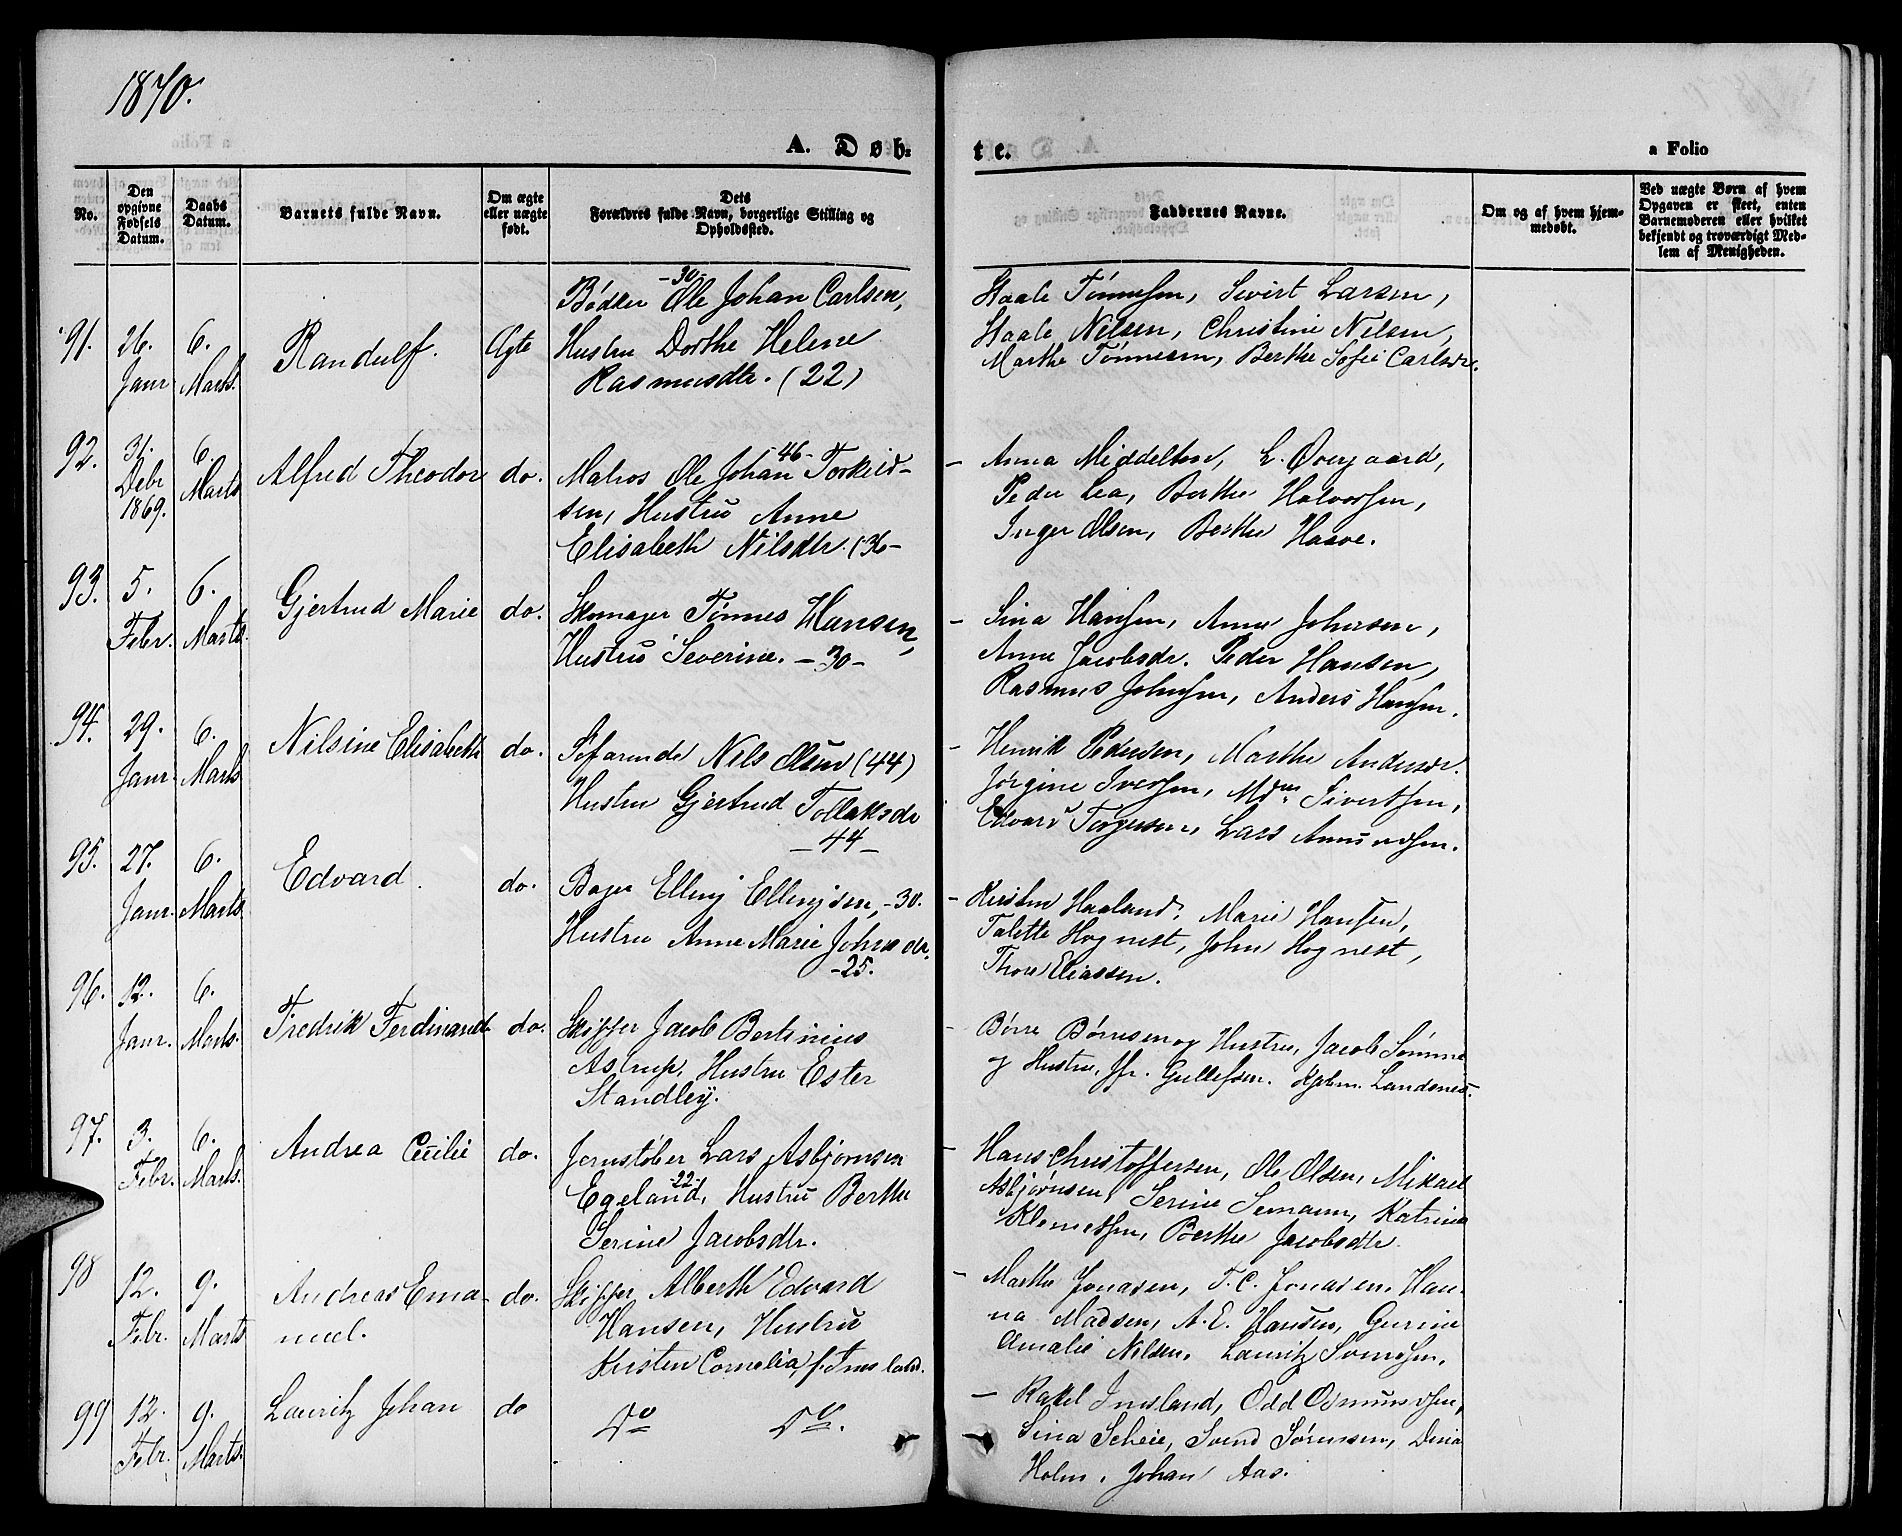 1870.
A. Døb-
te.
a Folio
No.
Den opgivne Fødsels Datum.
Daabs Datum.
Barnets fulde Navn.
Om ægte eller uægte født.
Dets Forældres fulde Navn, borgerlige Stilling og Opholdssted.
Faddernes Navne.
Om og af hvem hjemmedøbt.
Ved uægte Børn af hvem Opgaven er skeet, enten Barnemoderen eller hvilket bekjendt og troværdigt Medlem af Menigheden.
91. 26. Janr 6. Marts. Randulf. Ægte
Bødker Ole Johan Carlsen, -30-
Hustru Dorthe Helene
Rasmusdtr. (22)
Staale Tønnesen, Sivert Larsen,
Staale Nelsen, Christine Nelsen,
Marthe Tønnesen, Berthe Sofie Carlsdr.
92. 31. Debr 1869. 6. Marts Alfred Theodor do.
Matros Ole Johan Torkild- -46-
sen, Hustru Anne
Elisabeth Nilsdtr. (36-
- Anna Middelton, L. Overgaard,
Peder Lea, Berthe Halvorsen,
Inger Olsen, Berthe Haave.
93. 5. Febr. 6. Marts. Gjertrud Marie do.
Skomager Tønnes Hansen,
Hustru Severine. -30-
- Sina Hansen, Anne Johnsen,
Anne Jacobsdr. Peder Hansen,
Rasmus Johnsen, Anders Hansen.
94. 29. Janr. 6. Marts Nilsine Elisabeth do.
Søfarende Nils Olsen (44)
Hustru Gjertrud Tollaksdr
-44-
- Henrik Pedersen, Marthe Andersdr.
Jørgine Iversen, Mdm Sivertsen,
Edvard Torgersen, Lars Amundsen.
95. 27. Janr. 6. Marts Edvard. do.
Bager Elling Ellingsen, -30.
Hustru Anne Marie Johnsdr.
-25.
- Kirsten Haaland, Marie Hansen,
Talette Hognest, John Hognest,
Thore Eliassen.
96. 12. Janr. 6. Marts. Fredrik Ferdinand do.
Skipper Jacob Bertinius
Astrup, Hustru Ester
Standley.
- Børre Børresen og Hustru, Jacob Sømme
og Hustru, Jfr. Gullefsen. Kjøbm. Landsnes.
97. 3. Febr. 6. Marts. Andrea Cecilie do.
Jernstøber Lars Asbjørnsen
Egeland, -22- Hustru Berthe
Serine Jacobsdtr.
- Hans Christoffersen, Ole Olsen, Mikael
Asbjørnsen, Serine Semann, Katrine
Klemetsen, Berthe Jacobsdtr.
98 12. Febr. 9. Marts Andreas Ema- do.
nuel.
Skipper Alberth Edvard
Hansen, Hustru
Kirsten Cornelia, f. Imsland.
- Marthe Jonasen, T. C. Jonasen, Han-
na Madsen, A. E. Hansen, Gurine
Amalie Nilsen, Lauritz Svendsen.
99 12. Febr. 9. Marts. Lauritz Johan do
Do Do.
- Rakel Imsland, Odd Osmundsen,
Sina Scheie, Svend Sørensen, Dina
Holm, Johan Aas.